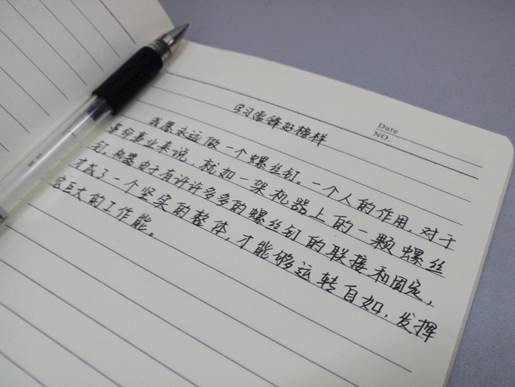 学习雷锋好榜样
Date
NO.
我愿永远做一个螺丝钉。一个人的作用,对于
革命事业来说,就如一架机器上的一颗螺丝
钉。机器由于有许许多多的螺丝钉的联接和固定,
才成了一个坚实的整体,才能够运转自如,发挥
它巨大的工作能。